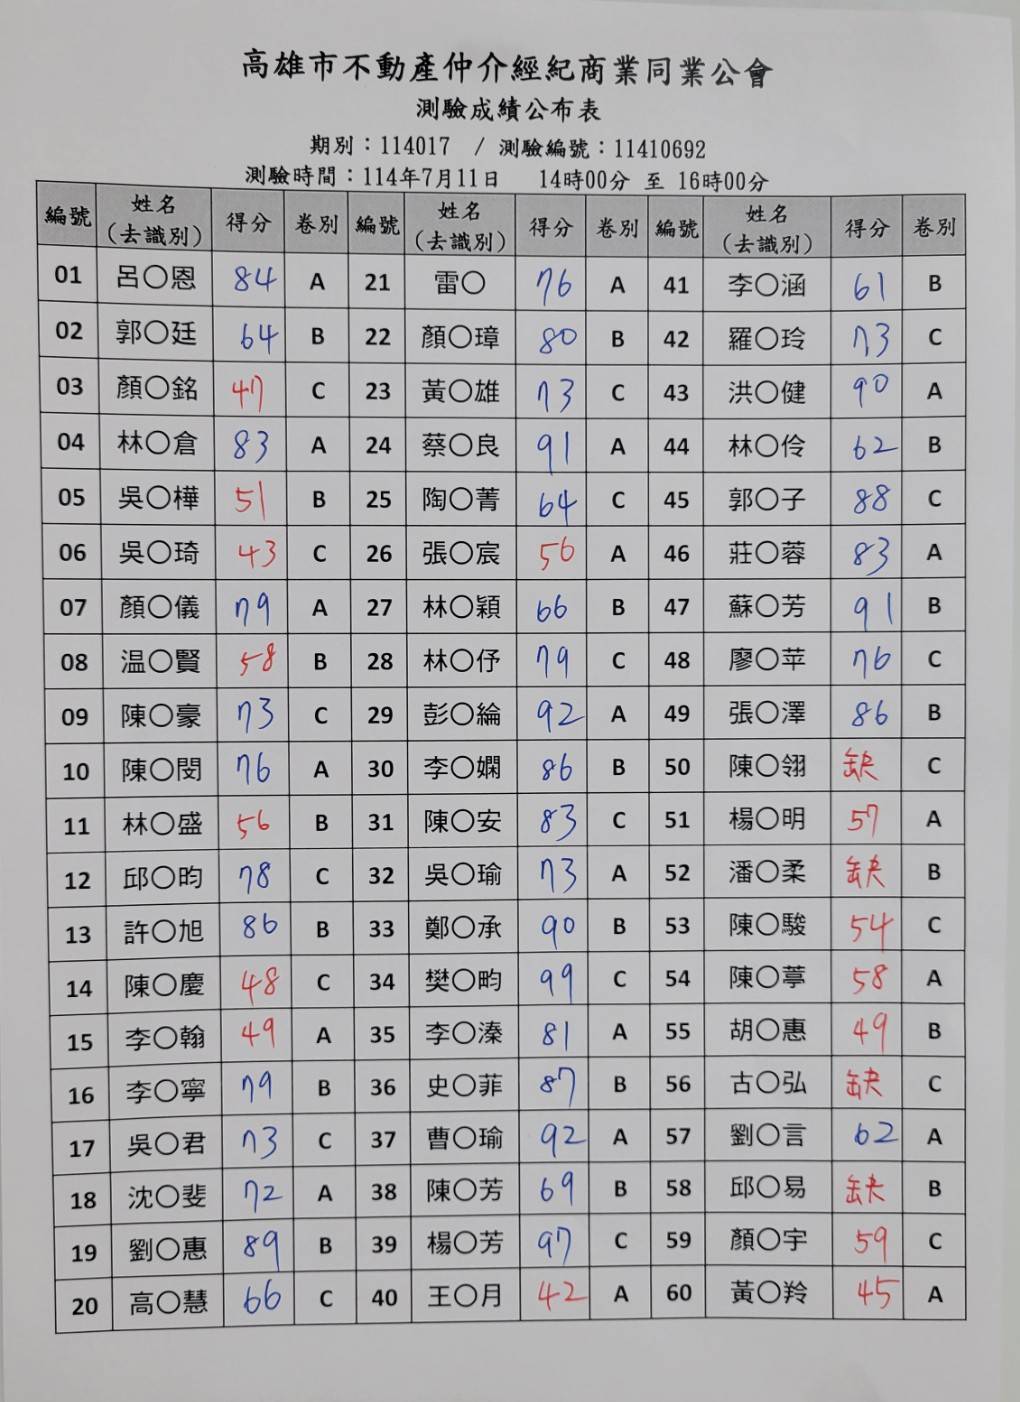 高雄市不動產仲介經紀商業同業公會
測驗成績公布表
期別：114017 / 測驗編號：11410692
測驗時間：114年7月11日 14時00分 至 16時00分
編號 姓名(去識別) 得分 卷別 編號 姓名(去識別) 得分 卷別 編號 姓名(去識別) 得分 卷別
01 呂〇恩 84 A 21 雷〇 76 A 41 李〇涵 61 B
02 郭〇廷 64 B 22 顏〇璋 80 B 42 羅〇玲 73 C
03 顏〇銘 47 C 23 黃〇雄 73 C 43 洪〇健 90 A
04 林〇倉 83 A 24 蔡〇良 91 A 44 林〇伶 62 B
05 吳〇樺 51 B 25 陶〇菁 64 C 45 郭〇子 88 C
06 吳〇琦 43 C 26 張〇宸 56 A 46 莊〇蓉 83 A
07 顏〇儀 79 A 27 林〇穎 66 B 47 蘇〇芳 91 B
08 温〇賢 58 B 28 林〇伃 79 C 48 廖〇苹 76 C
09 陳〇豪 73 C 29 彭〇綸 92 A 49 張〇澤 86 B
10 陳〇閔 76 A 30 李〇嫻 86 B 50 陳〇翎 缺 C
11 林〇盛 56 B 31 陳〇安 83 C 51 楊〇明 57 A
12 邱〇昀 78 C 32 吳〇瑜 73 A 52 潘〇柔 缺 B
13 許〇旭 86 B 33 鄭〇承 90 B 53 陳〇駿 54 C
14 陳〇慶 48 C 34 樊〇畇 99 C 54 陳〇葶 58 A
15 李〇翰 49 A 35 李〇溱 81 A 55 胡〇惠 49 B
16 李〇寧 79 B 36 史〇菲 87 B 56 古〇弘 缺 C
17 吳〇君 73 C 37 曹〇瑜 92 A 57 劉〇言 62 A
18 沈〇斐 72 A 38 陳〇芳 69 B 58 邱〇易 缺 B
19 劉〇惠 89 B 39 楊〇芳 97 C 59 顏〇宇 59 C
20 高〇慧 66 C 40 王〇月 42 A 60 黃〇羚 45 A